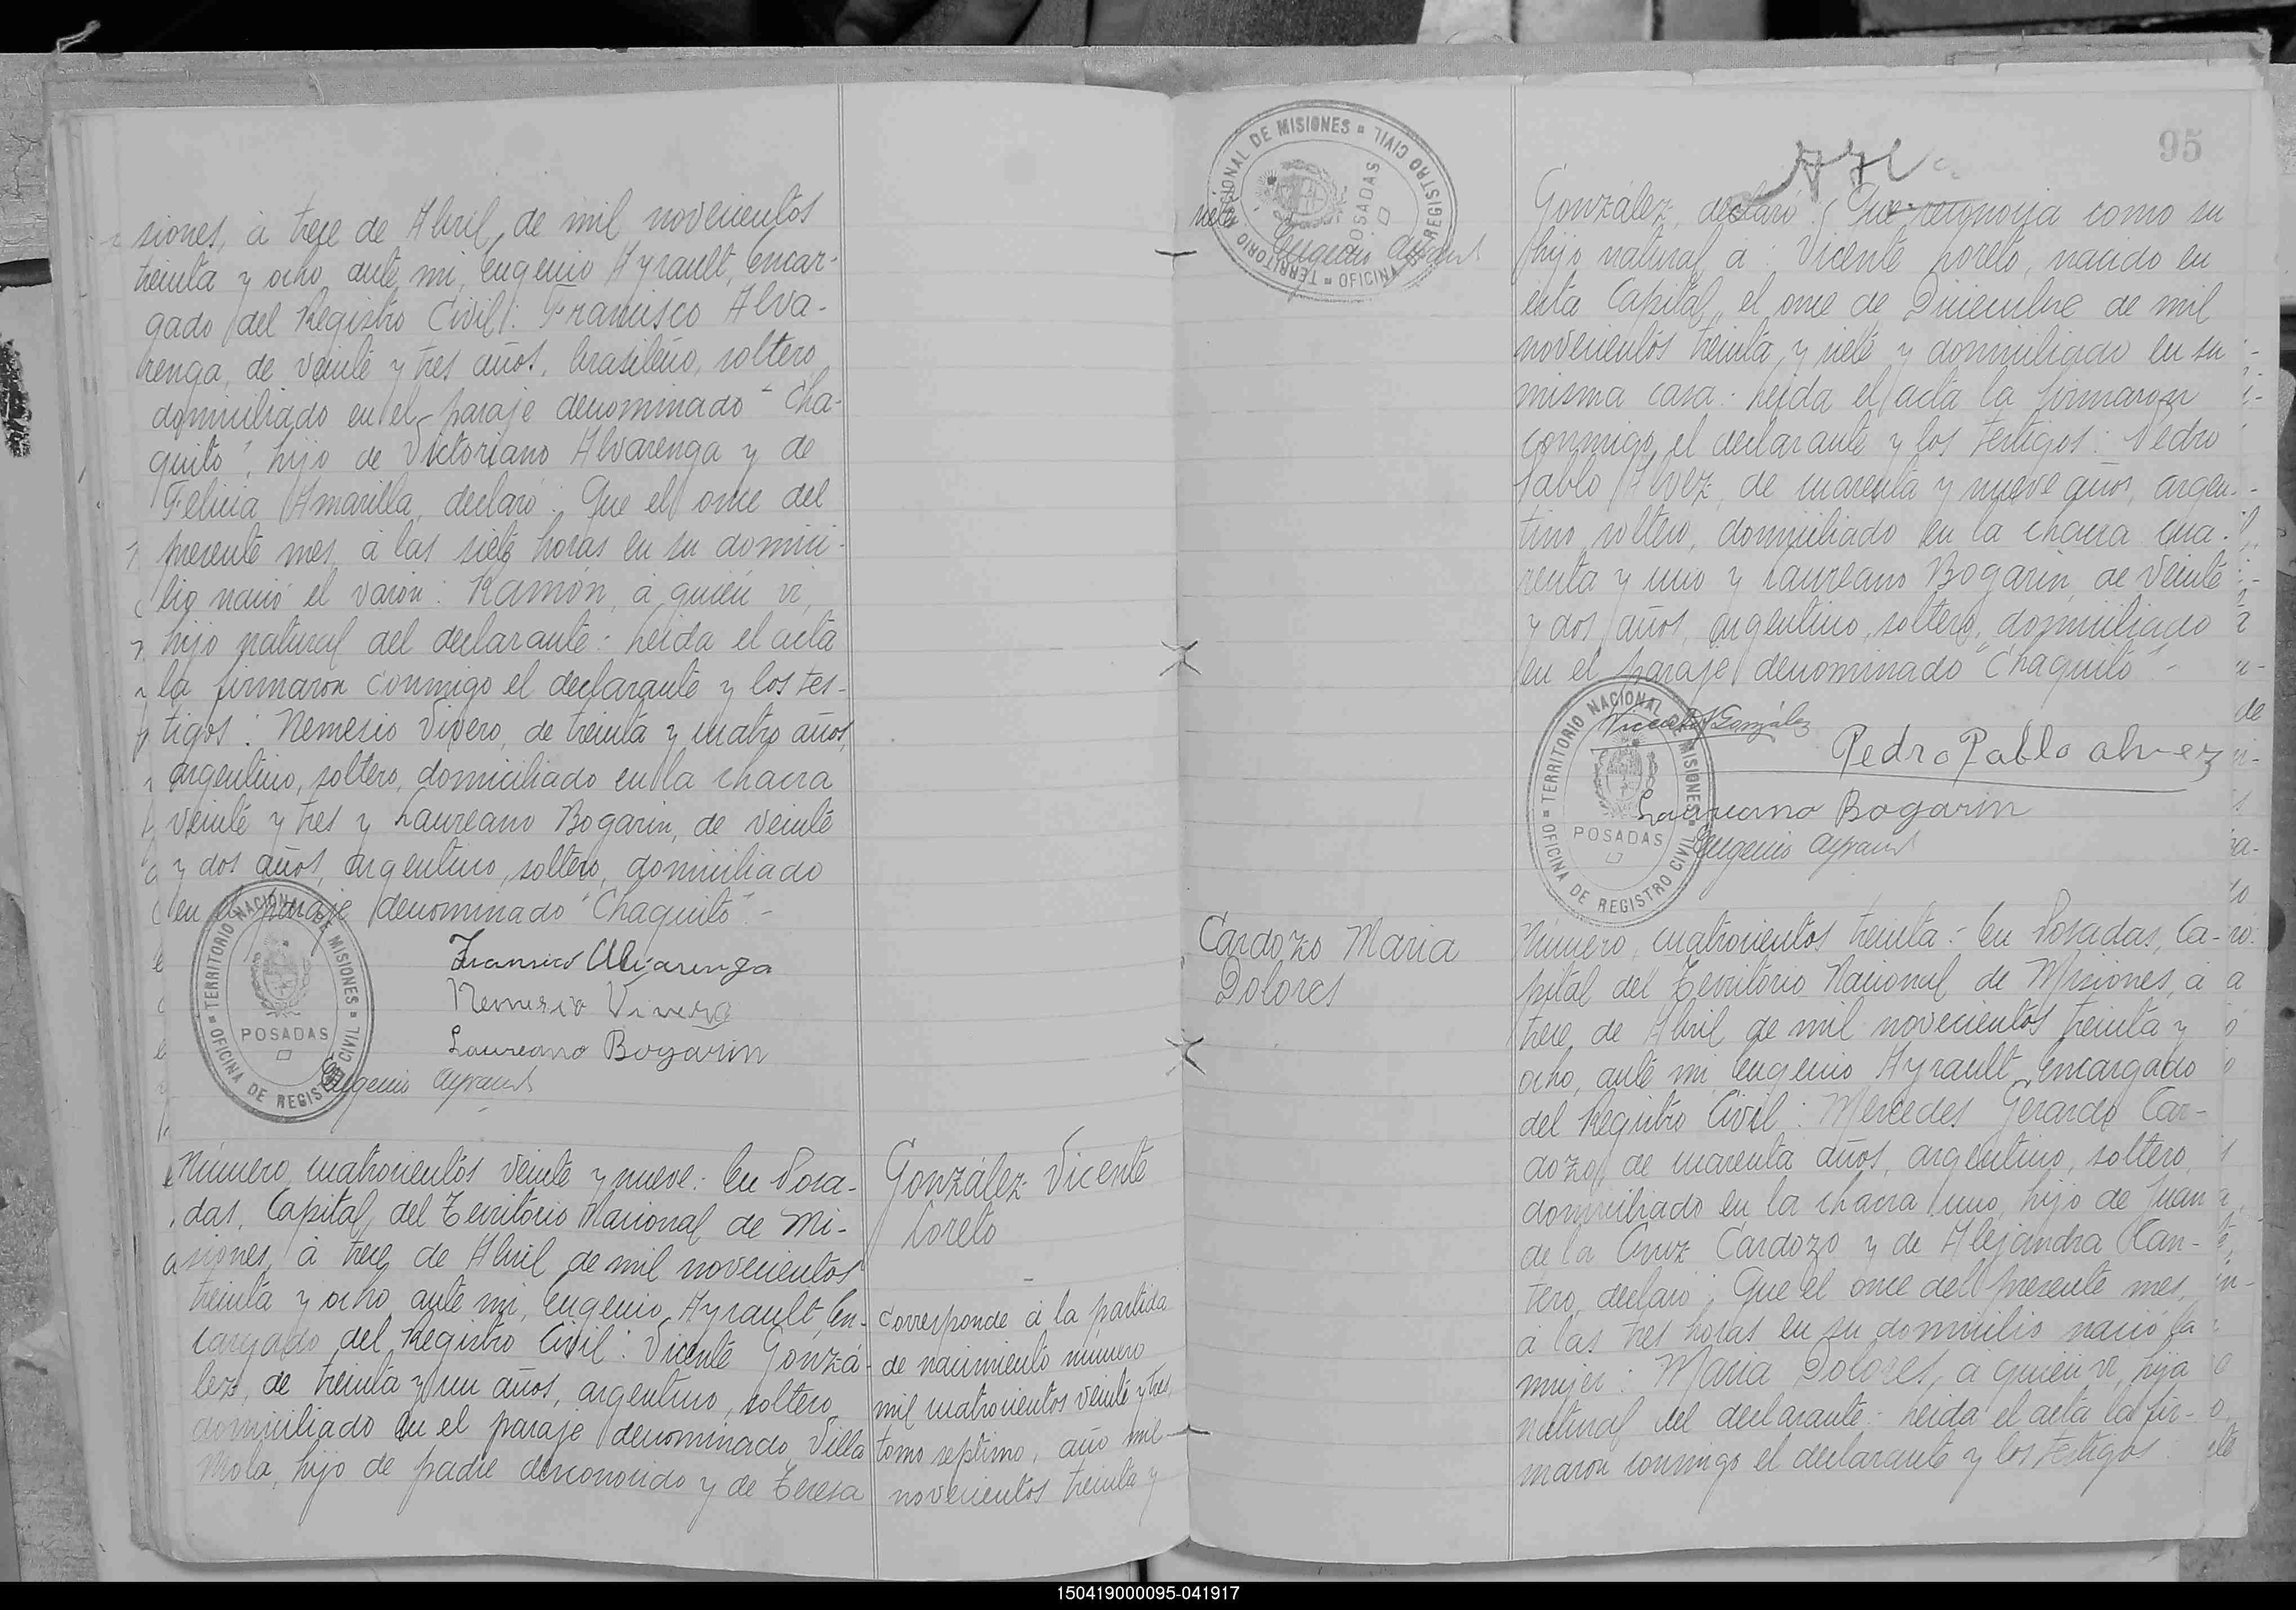 siones, á trece de Abril de mil novecientos
treinta y ocho, ante mi, Eugenio Ayrault, Encar-
gado del Registro Civil: Francisco Alva-
renga, de veinte y tres años, brasileño, soltero,
domiciliado en el paraje denominado "Cha-
quito", hijo de Victoriano Alvarenga y de
Felicia Amarilla, declaró: Que el once del
presente mes, á las siete horas en su domici-
lio nació el varón: Ramón, á quién vi,
hijo natural del declarante: Leida el acta
la firmaron conmigo el declarante y los tes-
tigos: Nemesio Vivero, de treinta y cuatro años,
argentino, soltero, domiciliado en la chacra
veinte y tres y Laureano Bogarin, de veinte
y dos años, argentino, soltero, domiciliado
en el paraje denominado "Chaquito".-
Francisco Alvarenga
Nemesio Vivero
Laureano Bogarin
Eugenio Ayrault
TERRITORIO NACIONAL DE MISIONES
POSADAS
OFICINA DE REGISTRO CIVIL
Número cuatrocientos veinte y nueve: En Posa-
das, Capital del Territorio Nacional de Mi-
siones, á trece de Abril de mil novecientos
treinta y ocho, ante mi, Eugenio Ayrault, En-
cargado del Registro Civil: Vicente Gonzá-
lez, de treinta y un años, argentino, soltero,
domiciliado en el paraje denominado Villa
Mola, hijo de padre desconocido y de Teresa
González Vicente
Loreto
corresponde á la partida
de nacimiento número
mil cuatrocientos veinte y tres,
tomo septimo, año mil
novecientos treinta y
siete
Eugenio Ayrault
TERRITORIO NACIONAL DE MISIONES
POSADAS
OFICINA DE REGISTRO CIVIL
95
González, declaró: Que reconocia como su
hijo natural á: Vicente Loreto, nacido en
esta Capital, el once de Diciembre de mil
novecientos treinta y siete y domiciliado en su
misma casa: Leida el acta la firmaron
conmigo el declarante y los testigos: Pedro
Pablo Alvez, de cuarenta y nueve años, argen-
tino, soltero, domiciliado en la chacra cua-
renta y uno y Laureano Bogarin, de veinte
y dos años, argentino, soltero, domiciliado
en el paraje denominado "Chaquito".-
Vicente González
Pedro Pablo alvez
Laureano Bogarin
Eugenio Ayrault
TERRITORIO NACIONAL DE MISIONES
POSADAS
OFICINA DE REGISTRO CIVIL
Cardozo Maria
Dolores
Número, cuatrocientos treinta: En Posadas, Ca-
pital del Territorio Nacional de Misiones, á
trece de Abril de mil novecientos treinta y
ocho, ante mi Eugenio Ayrault, Encargado
del Registro Civil: Mercedes Gerardo Car-
dozo, de cuarenta años, argentino, soltero,
domiciliado en la chacra uno, hijo de Juan
de la Cruz Cardozo y de Alejandra Kan-
tero, declaró: Que el once del presente mes,
á las tres horas en su domicilio nació la
mujer: Maria Dolores, á quién vi, hija
natural del declarante: Leida el acta la fir-
maron conmigo el declarante y los testigos:
150419000095-041917